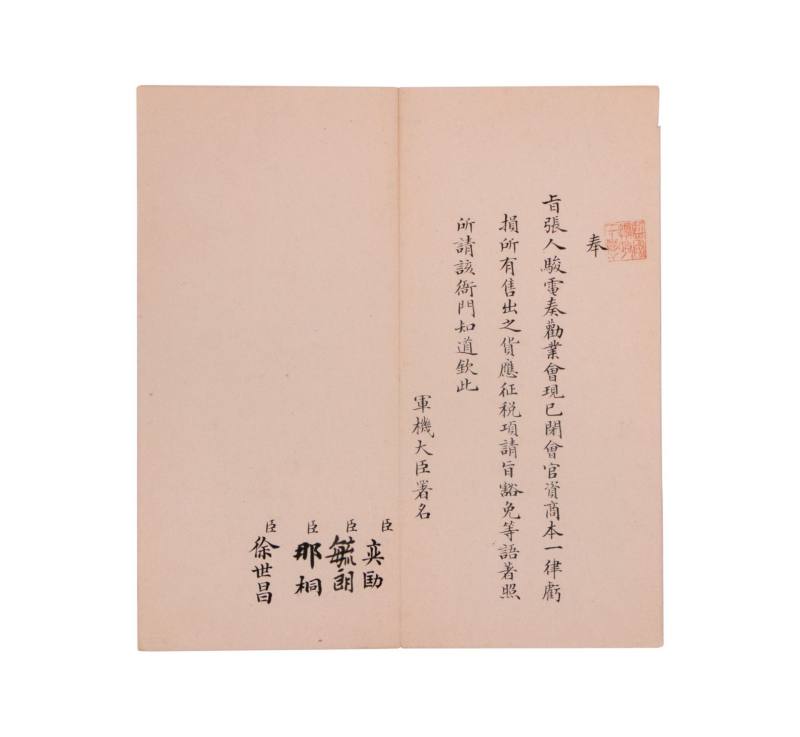 奉
旨張人駿電奏勸業會現已閉會官資商本一律虧
損所有售出之貨應征税項請旨豁免等語著照
所請該衙門知道欽此
軍機大臣署名
臣奕劻
臣毓朗
臣那桐
臣徐世昌